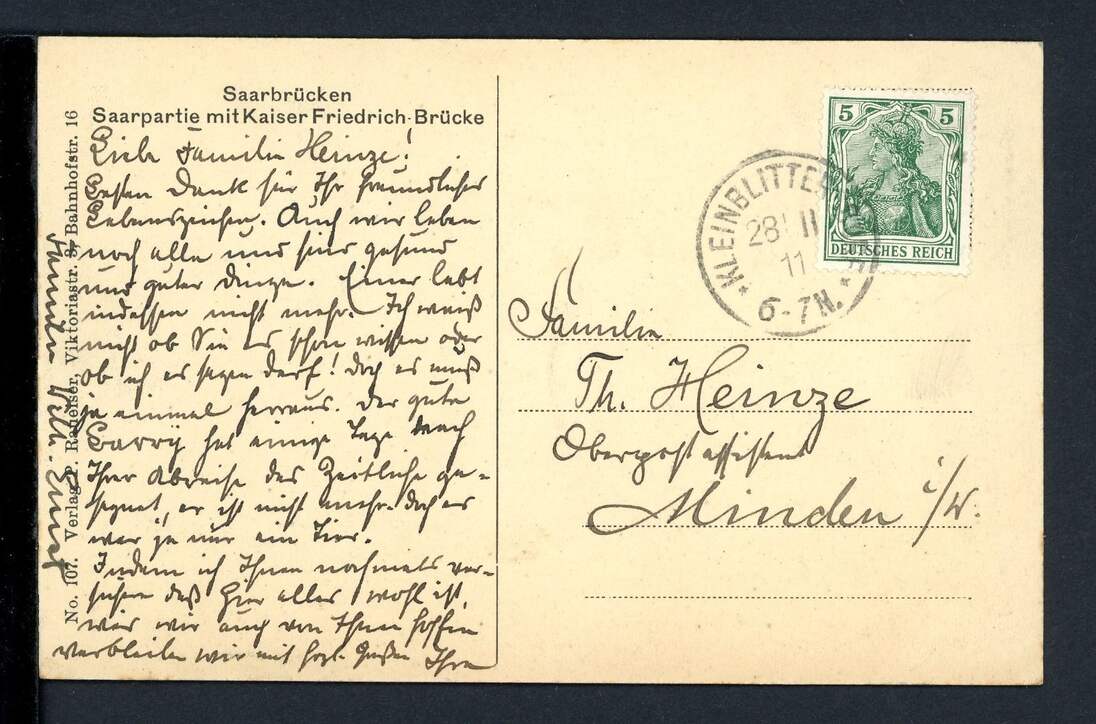 Saarbrücken
Saarpartie mit Kaiser Friedrich-Brücke
Liebe Familie Heinze!
Besten Dank für Ihr freundliches
Lebenszeichen. Auch wir leben
noch alle und sind gesund
und guter Dinge. Einer lebt
indessen nicht mehr. Ich weiß
nicht ob Sie es schon wissen oder
ob ich es sagen darf! doch es muß
ja einmal heraus. Der gute
hat einige Tage nach
Ihrer Abreise das Zeitliche ge-
segnet, er ist nicht mehr. doch es
war ja nur ein Tier.
Indem ich Ihnen nochmals ver-
sichere daß hier alles wohl ist,
was wir auch von Ihnen hoffen
verbleiben wir mit herzl. Grüßen Ihre
Familie
No. 107. Verlag P. Viktoriastr. 8, Bahnhofstr. 16
5 5
DEUTSCHES REICH
* KLEINBLITTER *
28 11
11
6-7N.
Familie
Th. Heinze
Oberpostassistent
Minden i/W.